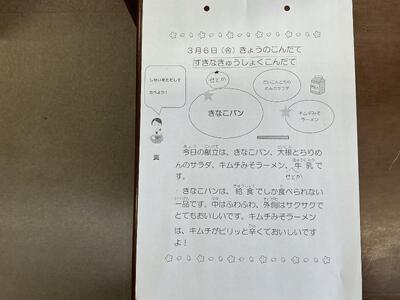 3月6日（金）きょうのこんだて
すきなきゅうしょくこんだて
しせいをただして
たべよう！
せとか
だいこんとちりめんのサラダ
きなこパン
キムチみそ
ラーメン
今日の献立は、きなこパン、大根とちりめ
んのサラダ、キムチみそラーメン、牛乳で
せとか
す。
・きなこパンは、給食でしか食べられない
一品です。中はふわふわ、外側はサクサクで
とてもおいしいです。キムチみそラーメン
は、キムチがピリッと辛くておいしいです
よ！